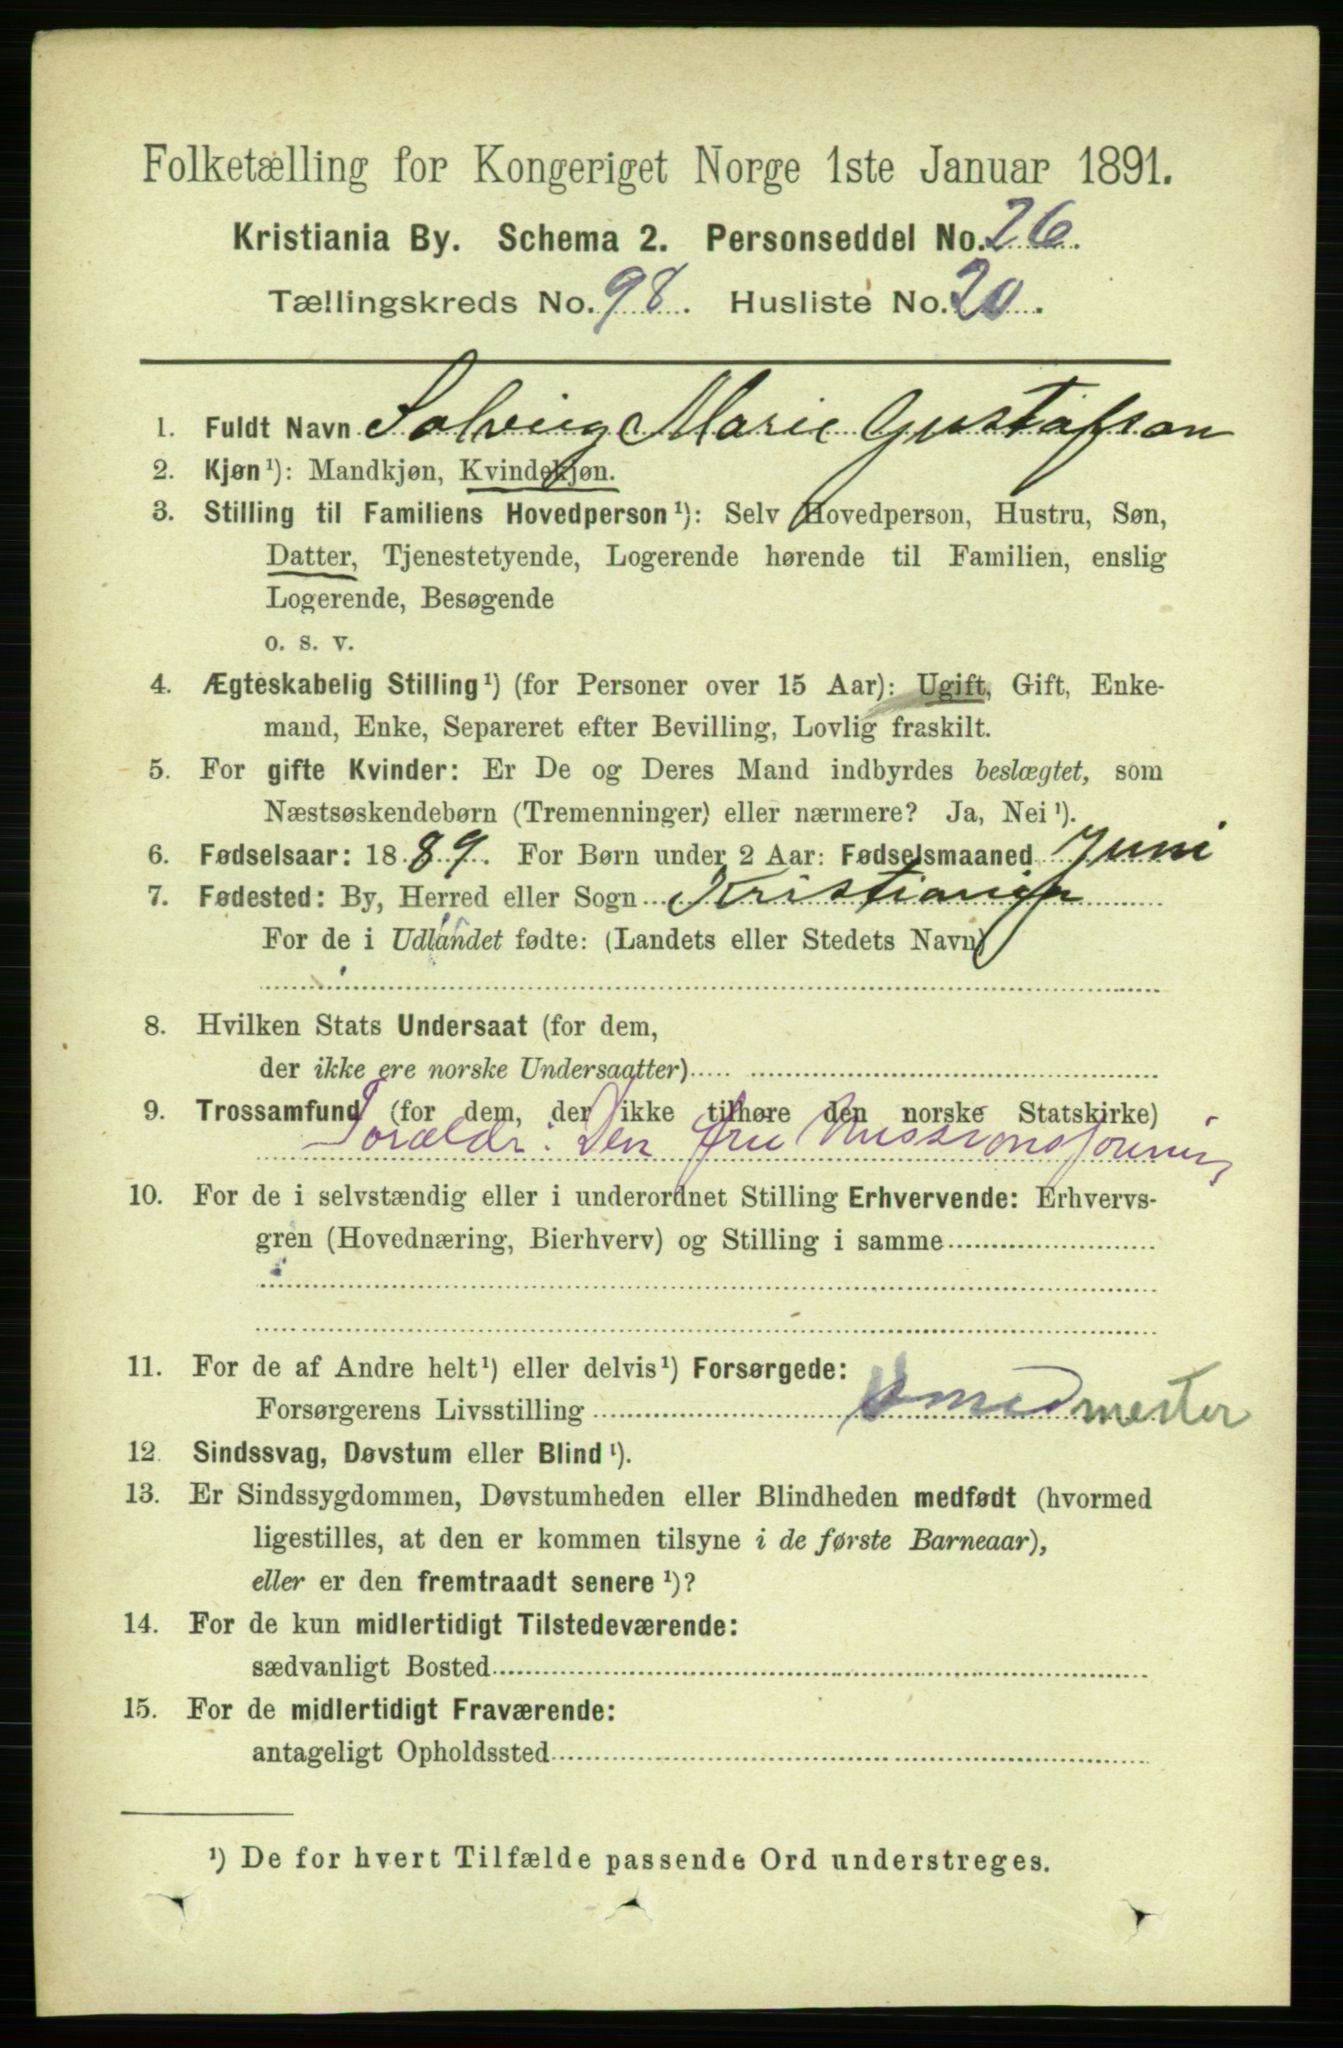 Folketælling for Kongeriget Norge 1ste Januar 1891.
Kristiania By. Schema 2. Personseddel No. 26.
Tællingskreds No. 98. Husliste No. 20.
1. Fuldt Navn Solveig Marie Gustafson
2. Kjøn¹): Mandkjøn, Kvindekjøn.
3. Stilling til Familiens Hovedperson¹): Selv Hovedperson, Hustru, Søn,
Datter, Tjenestetyende, Logerende hørende til Familien, enslig
Logerende, Besøgende
o. s. v.
4. Ægteskabelig Stilling¹) (for Personer over 15 Aar): Ugift, Gift, Enke-
mand, Enke, Separeret efter Bevilling, Lovlig fraskilt.
5. For gifte Kvinder: Er De og Deres Mand indbyrdes beslægtet, som
Næstsøskendebørn (Tremenninger) eller nærmere? Ja, Nei¹).
6. Fødselsaar: 1889. For Børn under 2 Aar: Fødselsmaaned Juni
7. Fødested: By, Herred eller Sogn Kristiania
For de i Udlandet fødte: (Landets eller Stedets Navn)
8. Hvilken Stats Undersaat (for dem,
der ikke ere norske Undersaatter)
9. Trossamfund (for dem, der ikke tilhøre den norske Statskirke)
Forældr: Den frie Missionsforening
10. For de i selvstændig eller i underordnet Stilling Erhvervende: Erhvervs-
gren (Hovednæring, Bierhverv) og Stilling i samme
11. For de af Andre helt¹) eller delvis¹) Forsørgede:
Forsørgerens Livsstilling Smedmester
12. Sindssvag, Døvstum eller Blind¹).
13. Er Sindssygdommen, Døvstumheden eller Blindheden medfødt (hvormed
ligestilles, at den er kommen tilsyne i de første Barneaar),
eller er den fremtraadt senere¹)?
14. For de kun midlertidigt Tilstedeværende:
sædvanligt Bosted
15. For de midlertidigt Fraværende:
antageligt Opholdssted
¹) De for hvert Tilfælde passende Ord understreges.